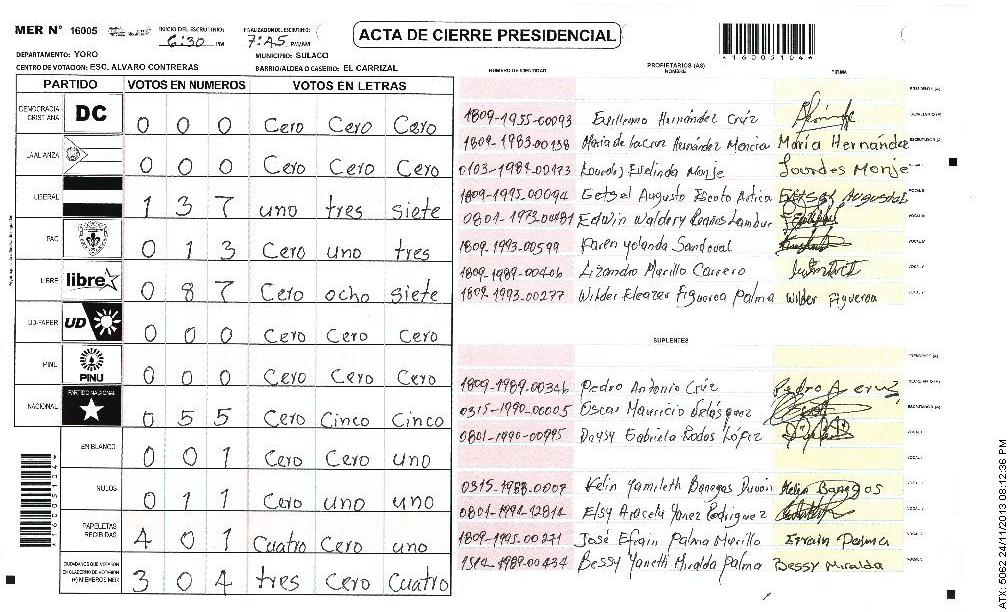 MER N° 16005 INICIO DEL ESCRUTINIO: 6:30 PM FINALIZACION DEL ESCRUTINIO: 7:45 PM/AM
ACTA DE CIERRE PRESIDENCIAL
*16005104*
DEPARTAMENTO: YORO MUNICIPIO: SULACO
CENTRO DE VOTACION: ESC. ALVARO CONTRERAS BARRIO/ALDEA O CASERIO: EL CARRIZAL
PARTIDO VOTOS EN NUMEROS VOTOS EN LETRAS
DEMOCRACIA CRISTIANA DC 0 0 0 Cero Cero Cero
LA ALIANZA 0 0 0 Cero Cero Cero
LIBERAL 1 3 7 uno tres siete
PAC 0 1 3 Cero uno tres
LIBRE libre 0 8 7 Cero ocho siete
UD-FAPER UD 0 0 0 Cero Cero Cero
PINU PINU 0 0 0 Cero Cero Cero
NACIONAL PARTIDO NACIONAL 0 5 5 Cero Cinco Cinco
EN BLANCO 0 0 1 Cero Cero uno
NULOS 0 1 1 Cero uno uno
PAPELETAS RECIBIDAS 4 0 1 Cuatro Cero uno
CIUDADANOS QUE VOTARON EN CUADERNO DE VOTACION (+) MIEMBROS MER 3 0 4 tres Cero Cuatro
NUMERO DE IDENTIDAD PROPIETARIOS (AS) NOMBRE FIRMA
PRESIDENTE (A)
1809-1955-00093 Guillermo Hernández Crúz
1809-1983-00138 María de la Cruz Hernández Murcia María Hernández
0103-1984-00173 Lourdes Evelinda Monje Lourdes Monje
1809-1995-00094 Getsel Augusto Escoto
0801-1973-04481 Edwin
1809-1993-00599 Karen Yolanda Sandoval
1809-1989-00406 Lizandro Murillo Carrero
1809-1993-00277 Wilder Eleazar Figueroa Palma Wilder Figueroa
SUPLENTES
PRESIDENTE (A)
1809-1989-00346 Pedro Antonio Crúz Pedro A cruz
0315-1990-00005 Escar Mauricio Velásquez
0801-1990-00995 Daysy Gabriela Rodas López
0315-1988-0007 Kelin Yamileth Banegas Kelin Banegas
0801-1994-12814 Elsy Aracely Yanez Rodriguez
1809-1995-00271 José Efraín Palma Murillo Efrain Palma
1514-1989-00434 Bessy Yaneth Miralda Palma Bessy Miralda
*16005104*
ATX: 5062 24/11/2013 08:12:36 PM